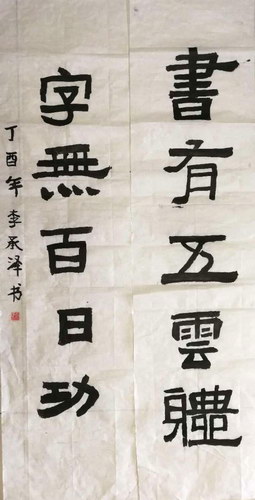 書有五雲體
字無百日功
丁酉年李承泽书